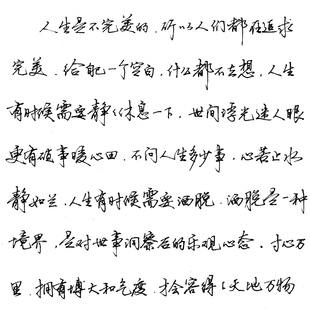 人生是不完美的，所以人们都在追求
完美，给自己一个空白，什么都不去想，人生
有时候需要静静休息一下，世间浮光迷人眼
更有破事暖心田，不问人生多少事，心若止水
静如兰，人生有时候需要洒脱，洒脱是一种
境界，是对世事洞察后的乐观心态，寸心万
里，拥有博大和气度，才会容得了天地万物